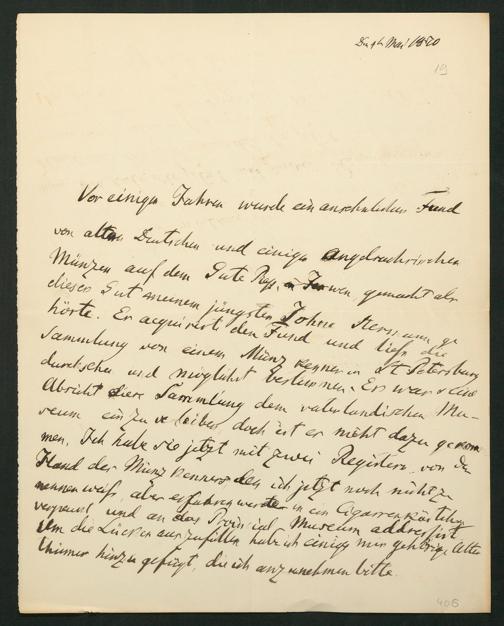 Mai 1870
19
Vor einigen Jahren wurde ein ansehnlicher Fund
von alten Deutschen und einigen angelsächsischen
Münzen auf dem Gute gemacht als
dieses Gut meinem jüngsten Sohne Hermann ge
hörte. Er acquirirte den Fund und liess die
Sammlung von einem Münzkenner in St Petersburg
durchsehen und möglichst bestimmen. Es war seine
Absicht diese Sammlung dem vaterländischen Mu-
seum einzuverleiben, doch ist er nicht dazu gekom
men. Ich habe sie jetzt mit zwei Registern, von der
Hand der Münzkenner den ich jetzt noch nicht zu
nennen weiß, aber erfahren werde in ein Cigarrenkästchen
verpackt und an das Provincial Museum addressirt
Um die Lücken auszufüllen hab ich einige mir gehörige alte
hinzu gefügt, die ich anzunehmen bitte.
406